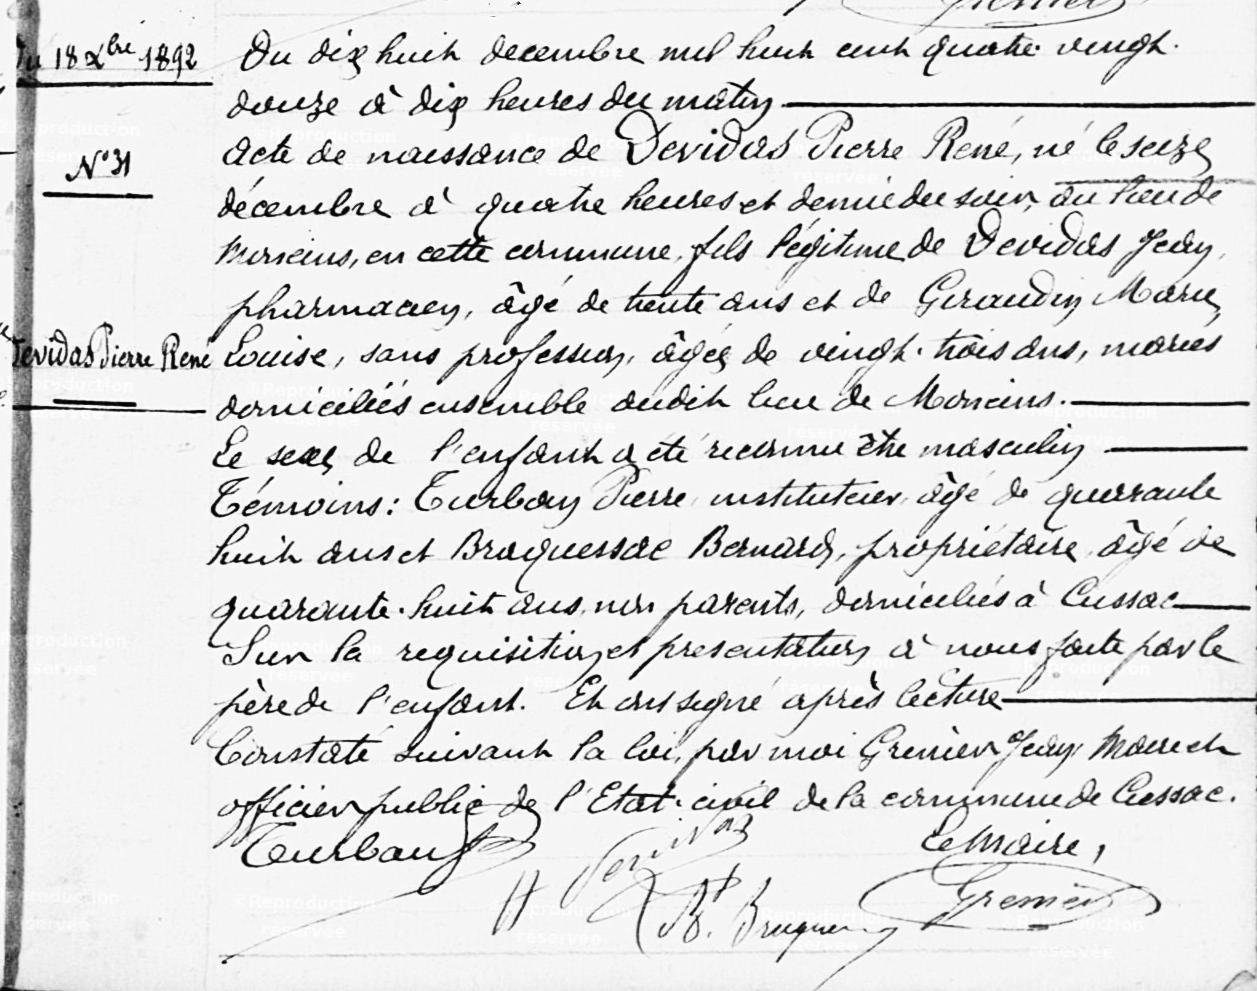 Du 18 Xbre 1892
N° 31
Devidas Pierre René
Du dix huit decembre mil huit cent quatre vingt
douze à dix heures du matin
acte de naissance de Devidas Pierre René, né le seize
décembre à quatre heures et demie du soir, au lieu de
en cette commune, fils légitime de Devidas Jean,
pharmacien, âgé de trente ans et de Giraudin Marie
Louise, sans profession, âgée de vingt-trois ans, mariés
domiciliés ensemble audit lieu de
Le sexe de l'enfant a été reconnu être masculin
Témoins: Turbau Pierre, instituteur, âgé de quarante
huit ans et Braquessac Bernard, propriétaire, âgé de
quarante-huit ans, non parents, domiciliés à Cussac
Sur la requisition et presentation à nous faite par le
père de l'enfant. Et ont signé après lecture
Constaté suivant la loi, par moi Grenier Jean Maire et
officier public de l'Etat-civil de la commune de Cussac.
Turbau
Le Maire,
Grenier